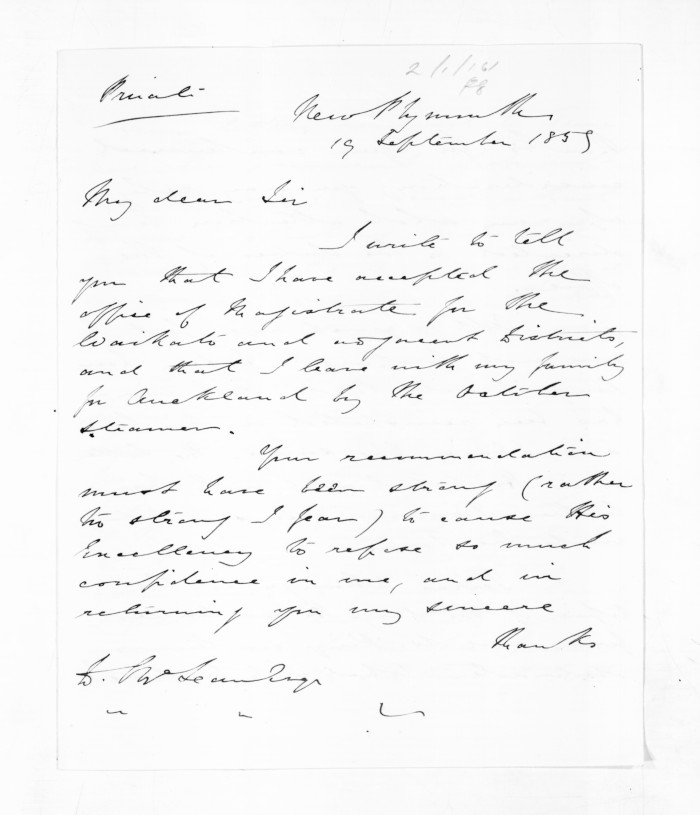 Private
New Plymouth
19 September 1859
My dear Sir
I write to tell
you that I have accepted the
office of Magistrate for the
Waikato and adjacent Districts,
and that I leave with my family
for Auckland by the October
steamer.
Your recommendation
must have been strong (rather
too strong I fear) to cause His
Excellency to repose so much
confidence in me, and in
returning you my sincere
thanks
D. McLean Esqr